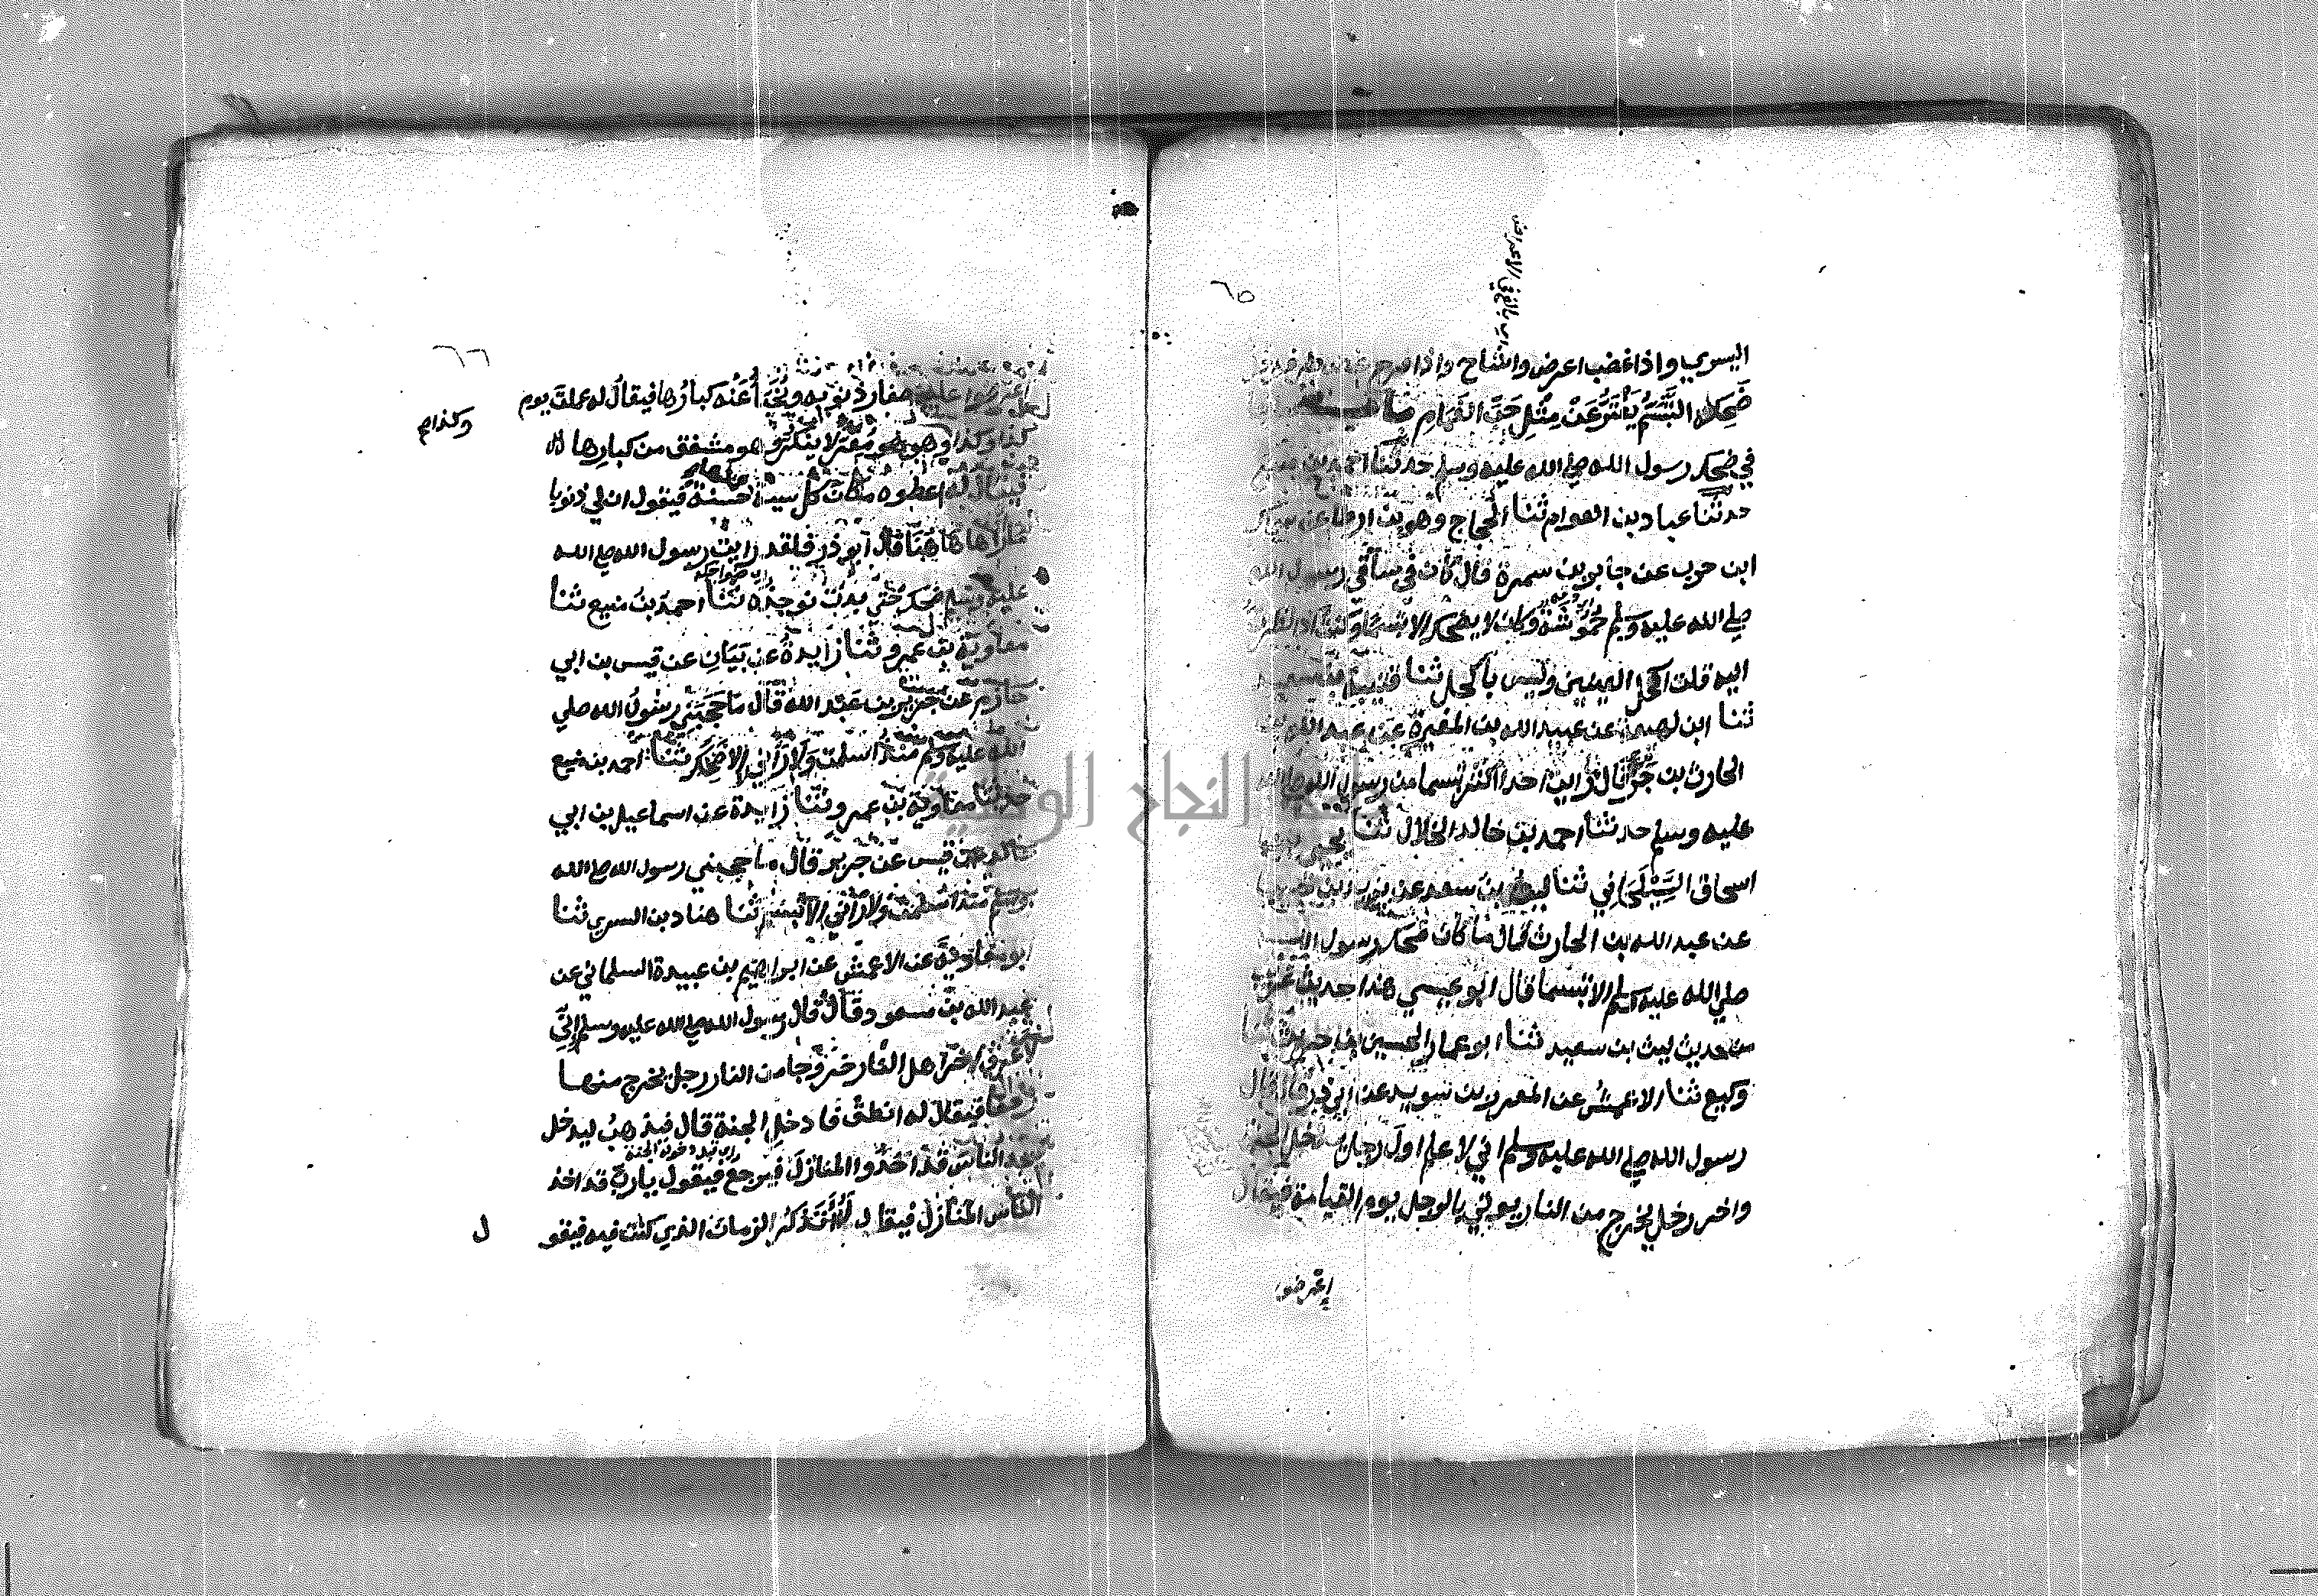 ٦٥
اي بالغ في الاعراض
اليسري واذا غضب اعرض واشاح واذا فرح
ضحكه التبسم يفتر عن مثل حب الغمام
في ضحك رسول الله صلي الله عليه وسلم حدثنا احمد بن
حدثنا عباد بن العوام ثنا الحجاج وهو بن ارطاة عن سماك
ابن حرب عن جابر بن سمرة قال كان في ساقي رسول الله
صلي الله عليه وسلم حموشة وكان لا يضحك الا تبسما وكنت اذا نظرت
اليه قلت اكحل العينين وليس باكحل ثنا قتيبة بن سعيد
ثنا ابن لهيعة عن عبيد الله بن المغيرة عن عبد الله بن
الحارث بن جزء قال ما رايت احدا اكثر تبسما من رسول الله صلي الله
عليه وسلم حدثنا احمد بن خالد الخلال ثنا يحيي بن
اسحاق السيلحاني ثنا ليث بن سعد عن يزيد بن
عن عبد الله بن الحارث قال ما كان ضحك رسول الله
صلي الله عليه وسلم الا تبسما قال ابو عيسي هذا حديث غريب
من حديث ليث ابن سعيد ثنا ابو عمار الحسين بن حريث
وكيع ثنا الاعمش عن المعرور بن سويد عن ابي ذر قال قال
رسول الله صلي الله عليه وسلم اني لاعلم اول رجل يدخل الجنة
واخر رجل يخرج من النار يوتي بالرجل يوم القيامة فيقال
اعرضوا
٦٦
اعرضوا عليه صغار ذنوبه ويخبا عنه كبارها فيقال له عملت يوم
وكذا صح
كذا وكذا وهو مقر لا ينكر وهو مشفق من كبارها
فيقال له اعطوه مكان كل سيئة حسنة فيقول ان لي ذنوبا
ما اراها هاهنا قال ابو ذر فلقد رايت رسول الله صلي الله
اي ضواحكه
عليه وسلم ضحك حتي بدت نواجذه ثنا احمد بن منيع ثنا
معاوية بن عمرو ثنا زايدة عن بيان عن قيس بن ابي
حازم عن جرير بن عبد الله قال ما حجبني رسول الله صلي
الله عليه وسلم منذ اسلمت ولا راني الا ضحك ثنا احمد بن منيع
حدثنا معاوية بن عمرو ثنا زايدة عن اسماعيل بن ابي
خالد عن قيس عن جرير قال ما حجبني رسول الله صلي الله
وسلم منذ اسلمت ولا راني الا تبسم ثنا هناد بن السري ثنا
ابو معاوية عن الاعمش عن ابراهيم بن عبيدة السلماني عن
عبد الله بن مسعود قال قال رسول الله صلي الله عليه وسلم اني
لاعرف اخر اهل النار خروجا من النار رجل يخرج منها
زحفا فيقال له انطلق فادخل الجنة قال فيذهب ليدخل
فيجد الناس قد اخذوا المنازل فيرجع فيقول يا رب قد اخذ
الناس المنازل فيقال له اتذكر الزمان الذي كنت فيه فيقو
ل
جامعة النجاح الوطنية